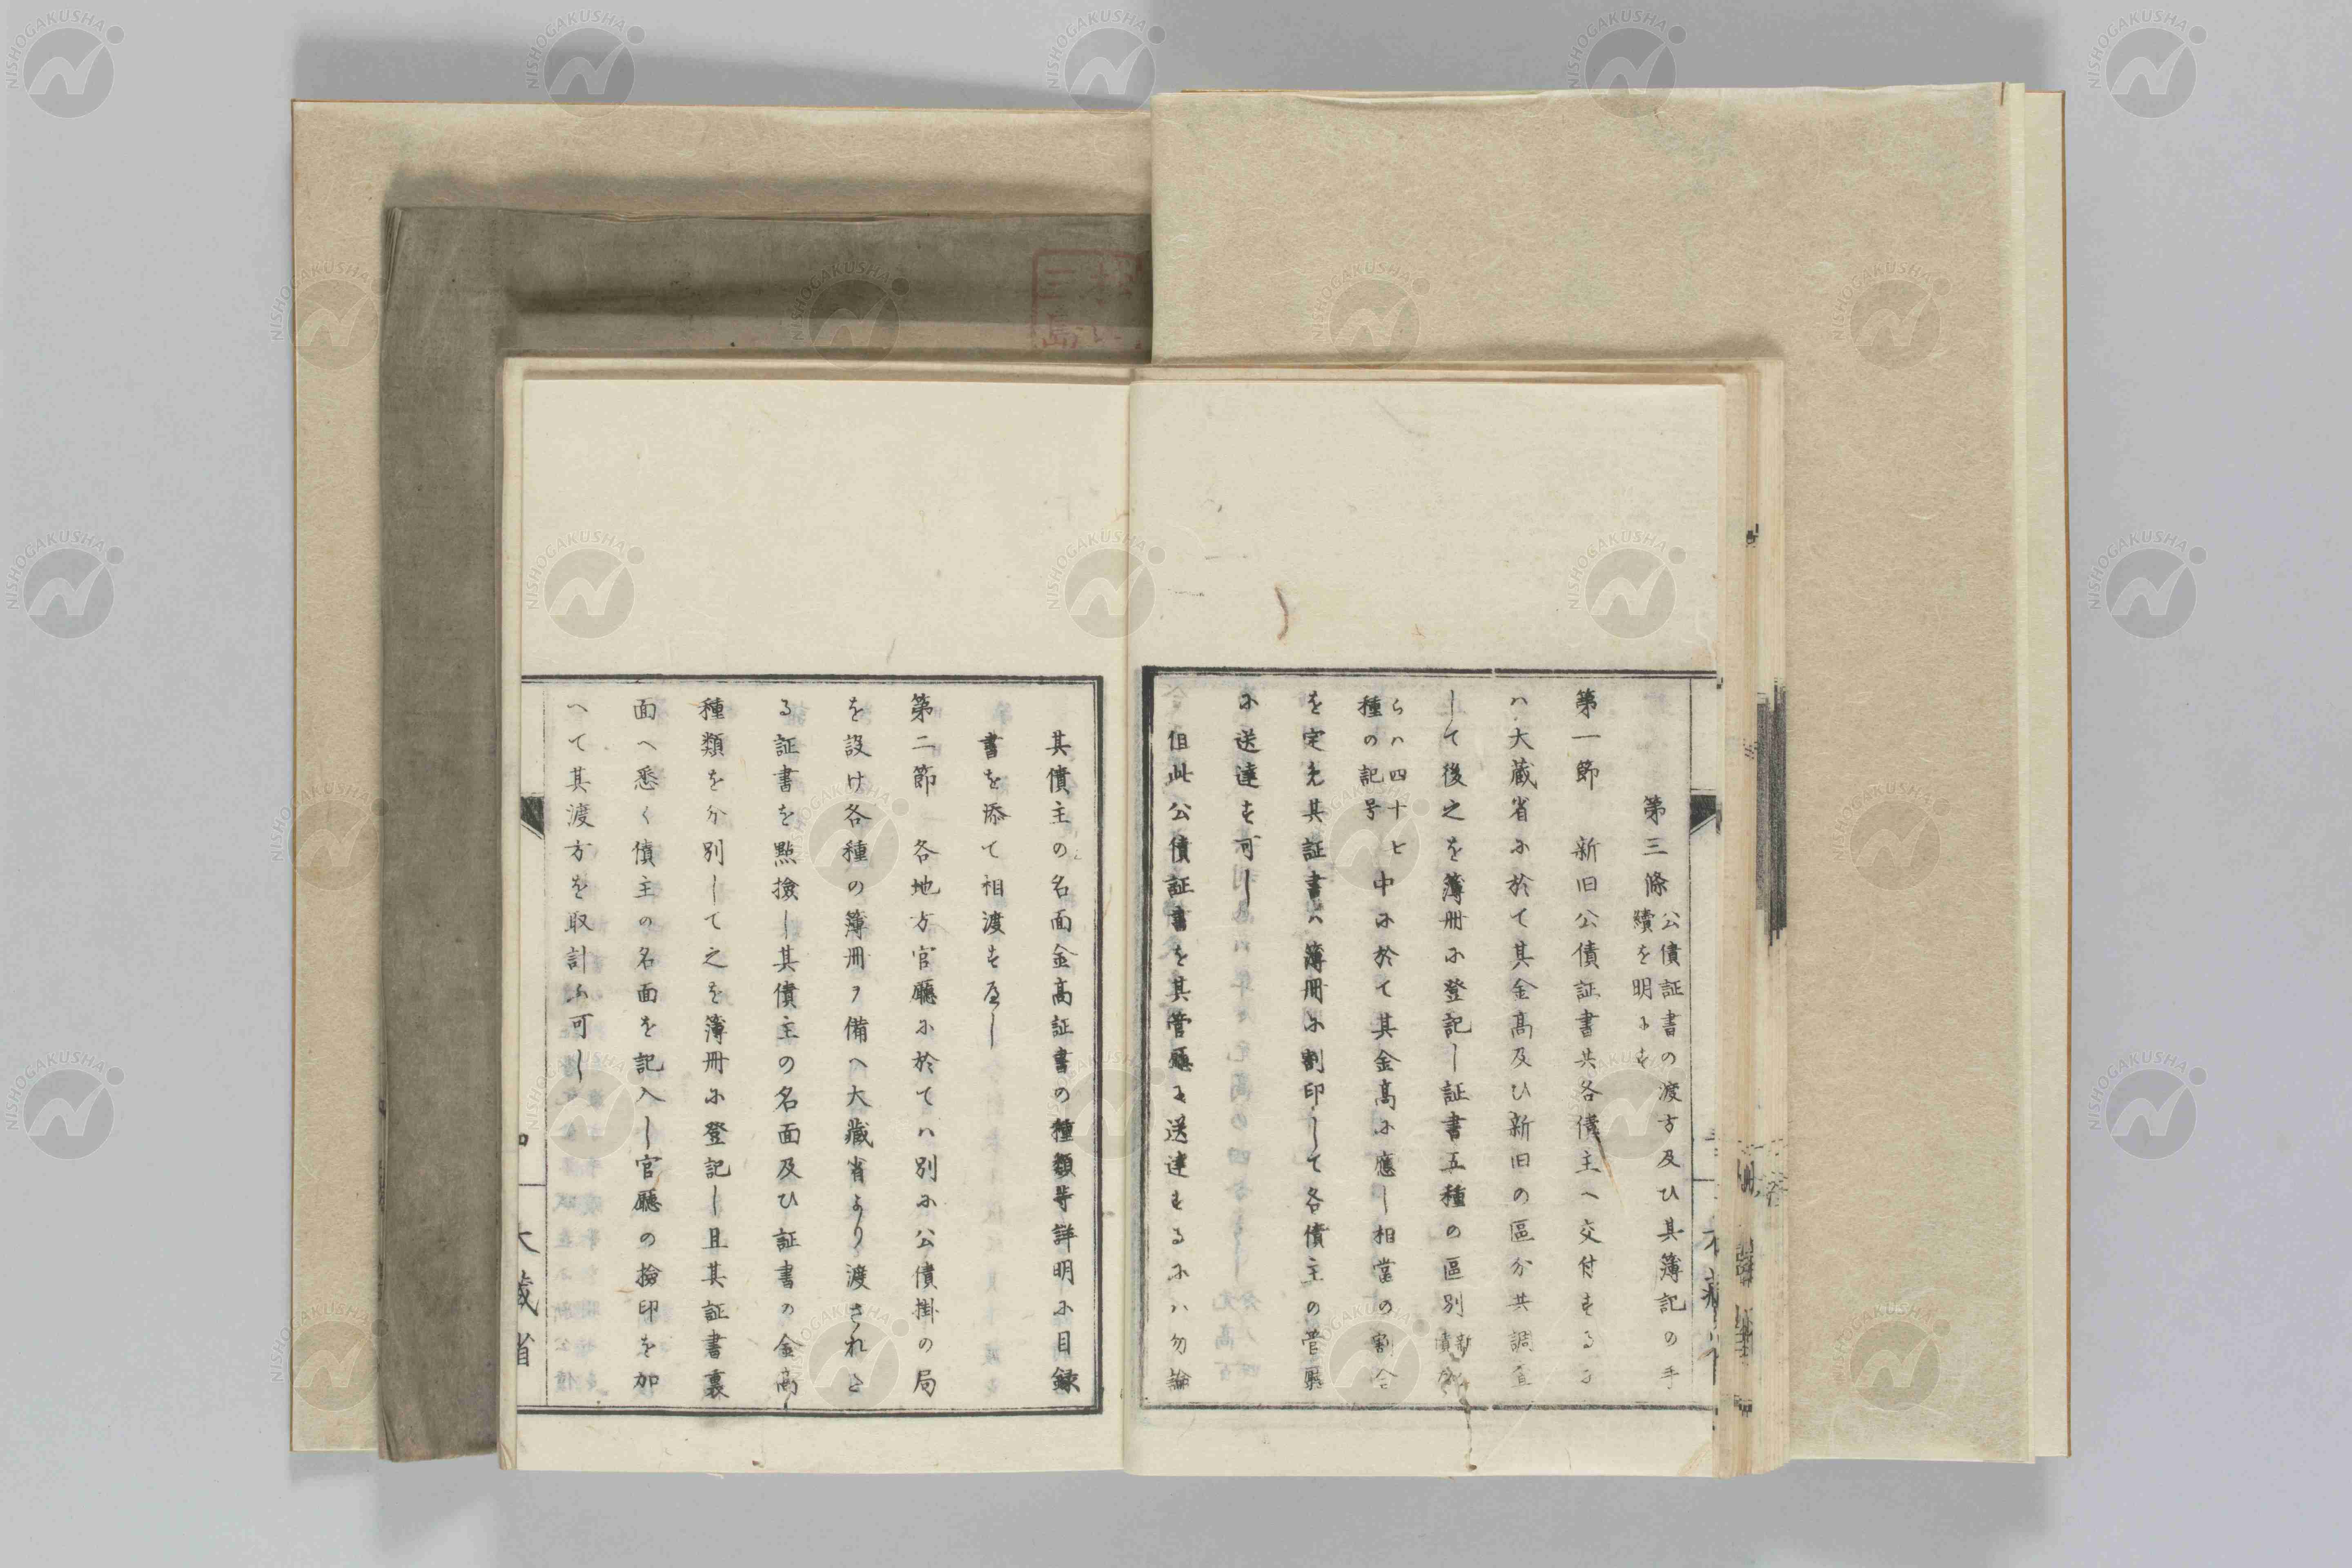 第三條 公債証書の渡方及ひ其簿記の手
續を明にす
第一節 新旧公債証書共各債主へ交付するる
ハ大蔵省に於て其金高及ひ新旧の區分共調直
して後之を簿冊に登記し証書五種の區別 新
債分
らハ四十ヒ
種の記号
中に於て其金高に應し相當の割合
を定免其証書ハ簿冊に割印して各債主の管廳
に送達す可し
但此公債証書を其管廳に送達するにハ勿論
其債主の名面金高証書の種類等詳明に目録
書を添て相渡すへし
第二節 各地方官廳に於てハ別に公債掛の局
を設け各種の簿冊ヲ備へ大蔵省より渡されと
る証書を點撿し其債主の名面及ひ証書の金高
種類を分別して之を簿冊に登記し且其証書裏
面へ悉く債主の名面を記入し官廳の撿印を加
へて其渡方を取計ふ可し
大蔵省
三島
NISHOGAKUSHA